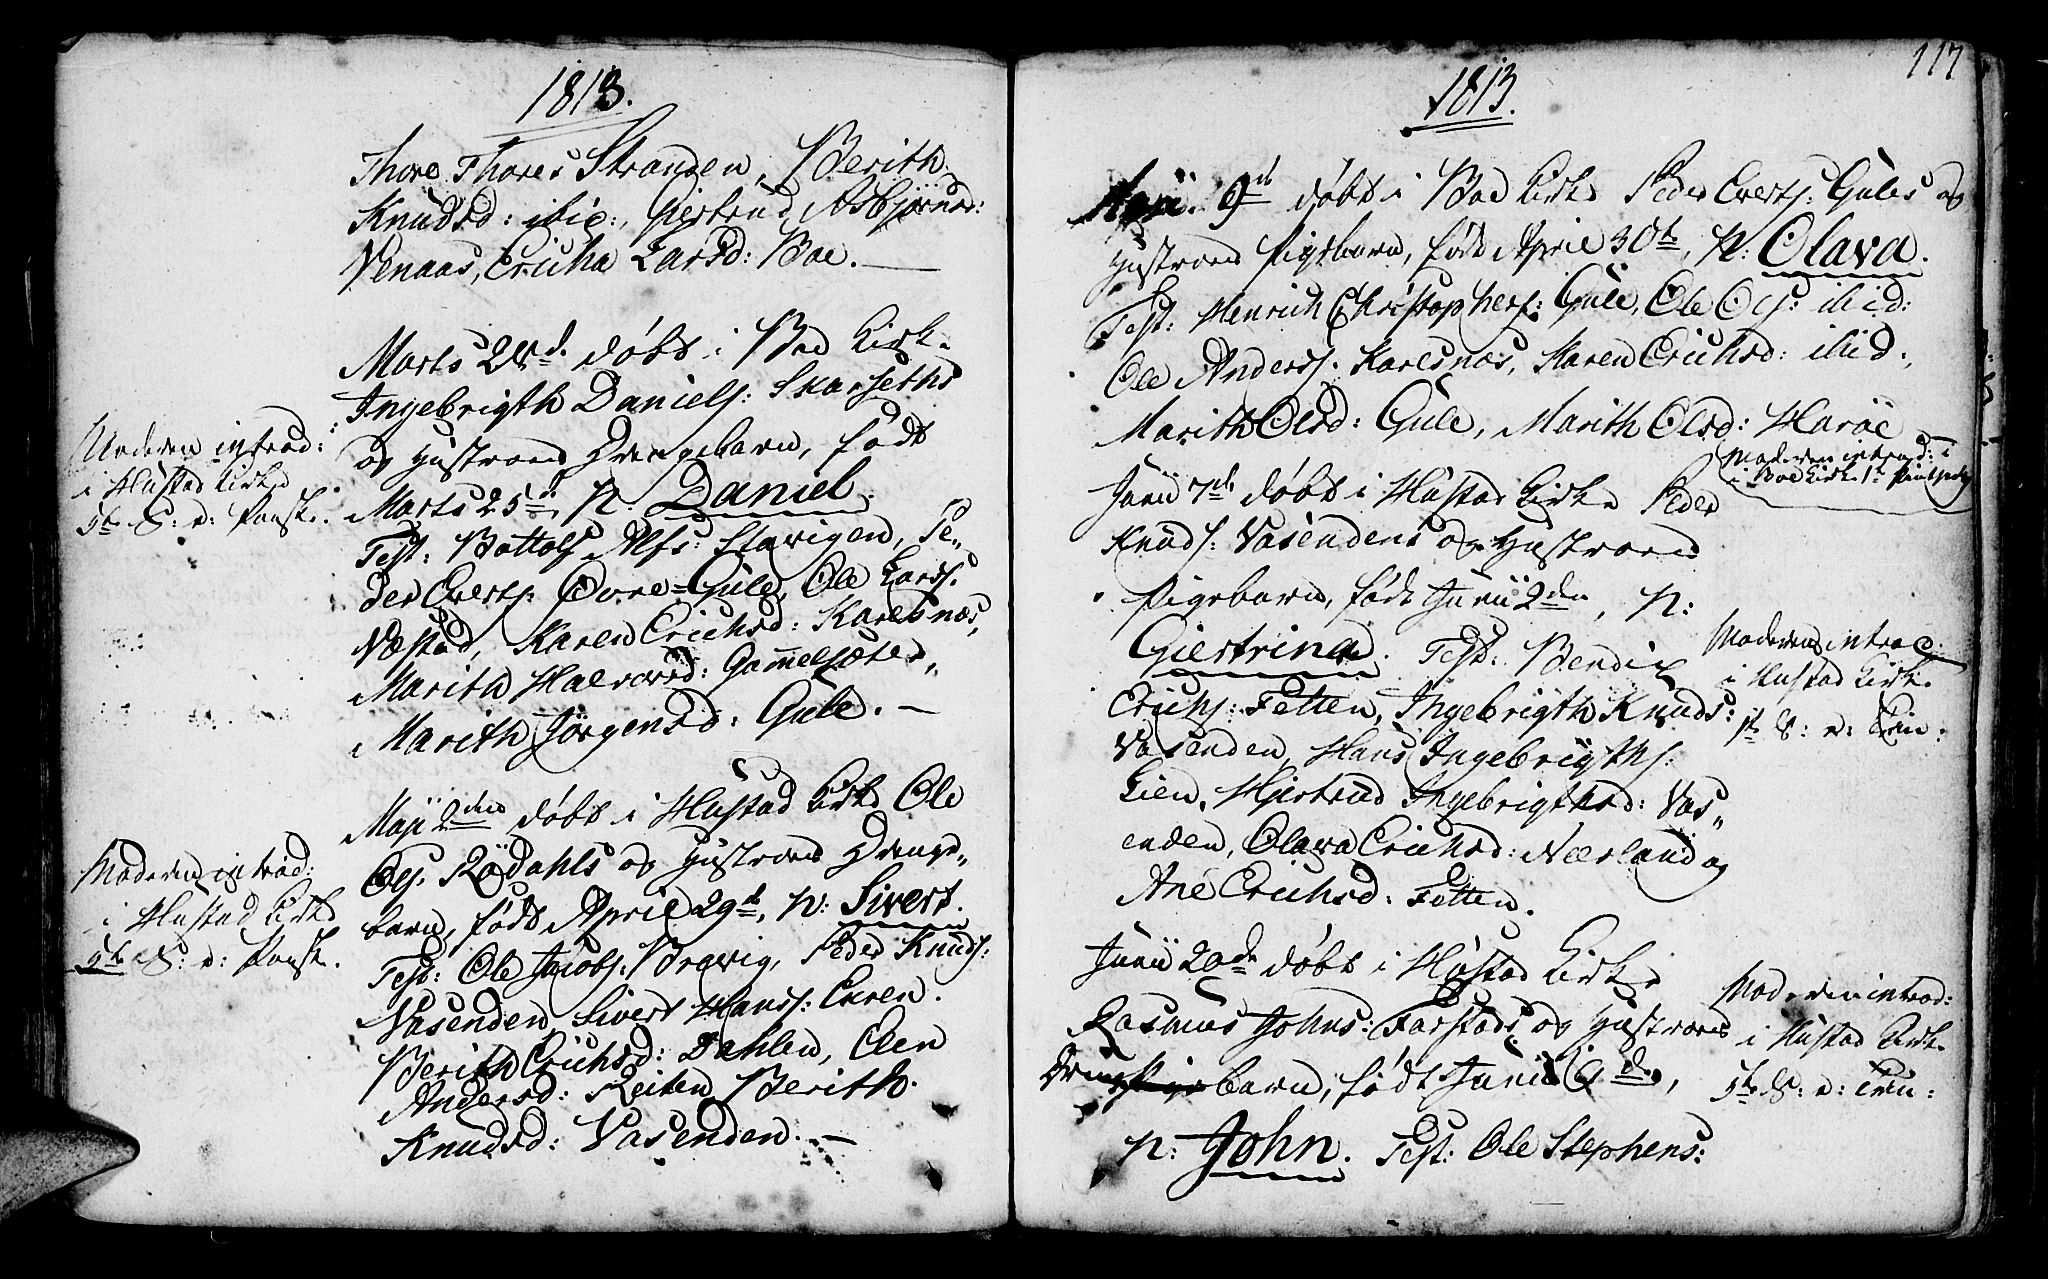 1813.
Thore Thores Stranden, Berith
Knudsd: ibid:, Giertrud Asbjørnsd:
Venaas, Ericha Larsd: Boe. —
Marts 28d. døbt i Boe Kirke
Ingebrigth Daniels: Skarseths
og Hustroes Drengebarn, født
Marts 25d. N. Daniel.
Test: Bottolf Alfs: Stavigen, Pe-
der Everts: Øvre-Gule, Ole Lards:
Næstad, Karen Erichsd: Karesnæs,
Marith Halvord: Gammelsæter,
Marith Jørgensd: Gule. —
Moderen introd:
i Hustad Kirke
5te S: p: Paask:
Maji 2den døbt i Hustad Kirke Ole
Ols: Rødahls og Hustroes Drenge-
barn, født April 29d. N: Sivert.
Test: Ole Jacobs: Brevig, Peder Knuds:
Vasenden, Sivert Hans: Exren.
Berith Erichsd: Dahlen, Elen
Andersd: Reiten, Berith
Knudsd: Vasenden. —
Moderen introd:
i Hustad Kirke
5te S: p: Paask.
117
1813.
Maji 9d døbt i Boe Kirke Peder Everts: Gules og
Hustroes Pigebarn, født April 30te, N: Olava.
Test: Henrich Christophers: Gule, Ole Ols: ibid:
Ole Anders: Karesnæs, Karen Erichsd: ibid.
Marith Olsd: Gule, Marith Olsd: Harøe
Moderen introd:
i Boe Kirke 1te Pintsedag
Junii 7de døbt i Hustad Kirke Peder
Knuds: Vasendens og Hustroes
Pigebarn, født Junii 2den, N:
Giertrina. Test: Bendix
Erichs: Fetten, Ingebrigth Knuds:
Vasenden, Hans Ingebrigths:
Lien, Hiertrud Ingebrigthsd: Vas-
enden, Olava Erichsd: Nærland og
Ane Erichsd: Fetten.
Moderen introd:
i Hustad Kirke
5te S: p: Trin:
Junii 20de døbt i Hustad Kirke
Rasmus Johns: Farstads og Hustroes
Drengebarn, født Junii 9de,
N: John. Test: Ole Stephens:
Moderen introd:
i Hustad Kirke
5te S: p: Trin: